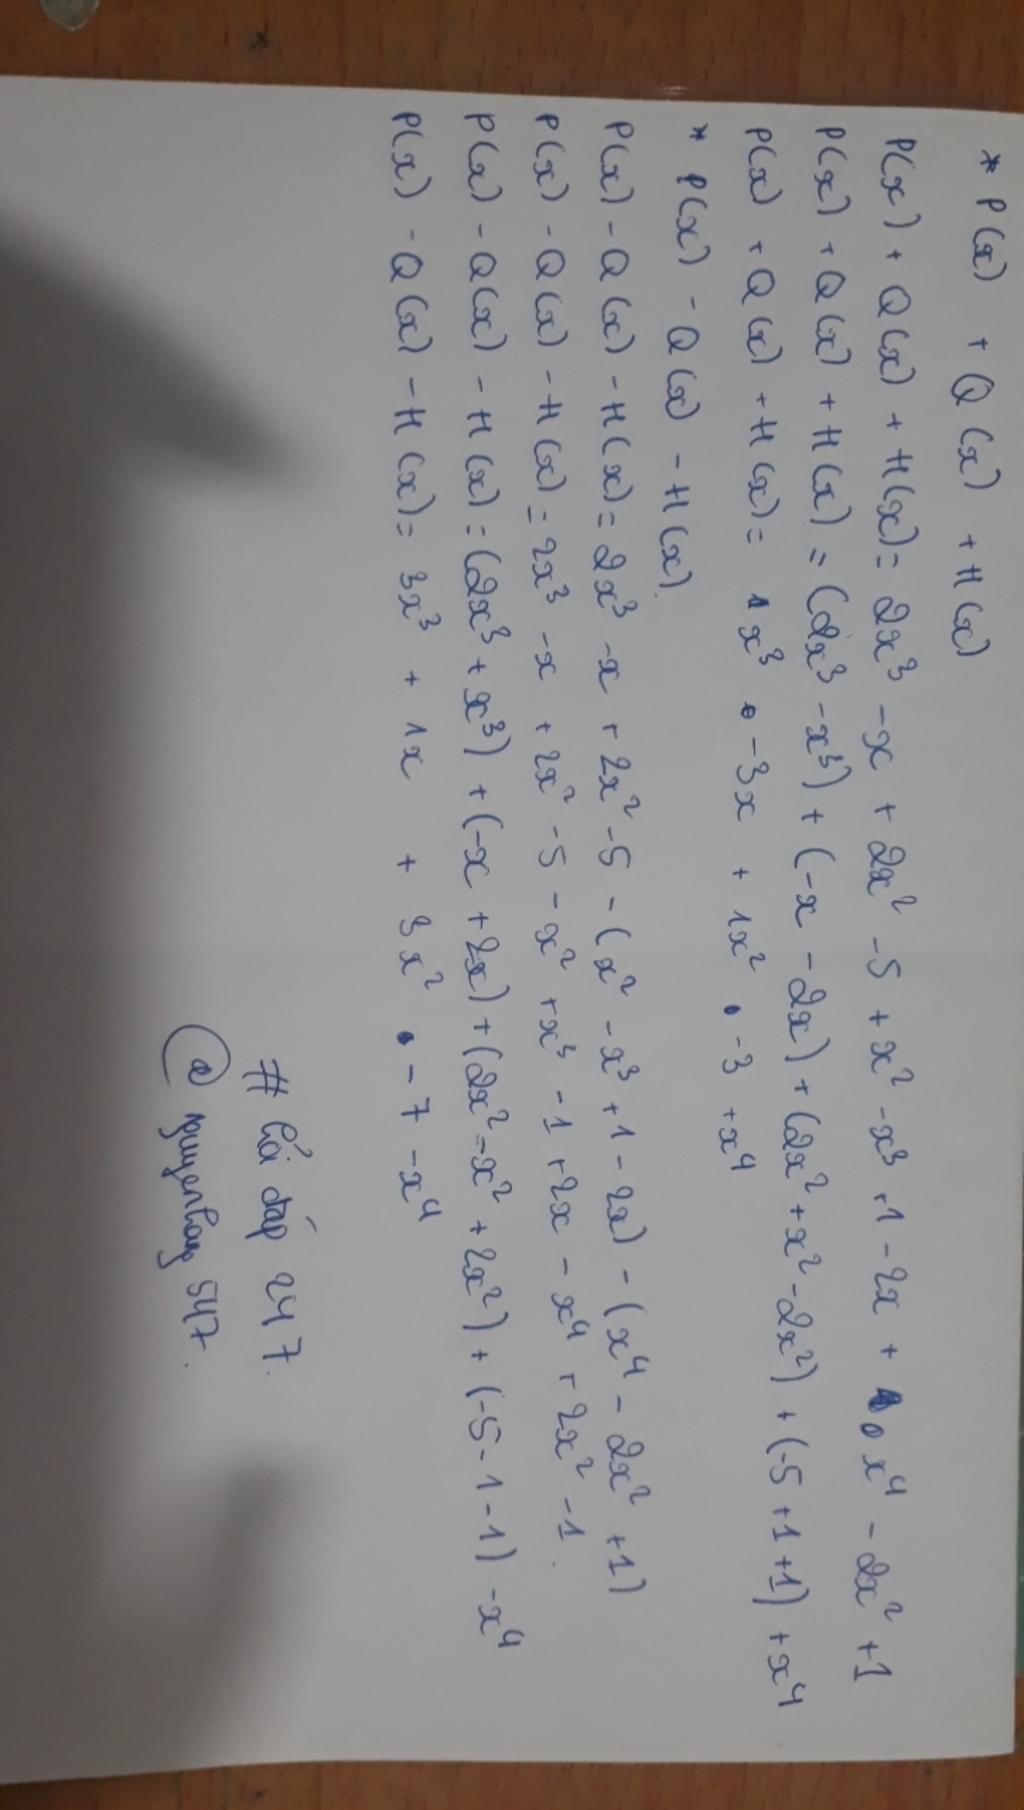 * P(x) + Q(x) + H(x)
P(x) + Q(x) + H(x) = 2x³ - x + 2x² - 5 + x² - x³ + 1 - 2x + x⁴ - 2x² + 1
P(x) + Q(x) + H(x) = (2x³ - x³) + (-x - 2x) + (2x² + x² - 2x²) + (-5 + 1 + 1) + x⁴
P(x) + Q(x) + H(x) = 1x³ - 3x + 1x² - 3 + x⁴
* P(x) - Q(x) - H(x)
P(x) - Q(x) - H(x) = 2x³ - x + 2x² - 5 - (x² - x³ + 1 - 2x) - (x⁴ - 2x² + 1)
P(x) - Q(x) - H(x) = 2x³ - x + 2x² - 5 - x² + x³ - 1 + 2x - x⁴ + 2x² - 1.
P(x) - Q(x) - H(x) = (2x³ + x³) + (-x + 2x) + (2x² - x² + 2x²) + (-5 - 1 - 1) - x⁴
P(x) - Q(x) - H(x) = 3x³ + 1x + 3x² - 7 - x⁴
# hỏi đáp 247.
@ nguyenhong547.